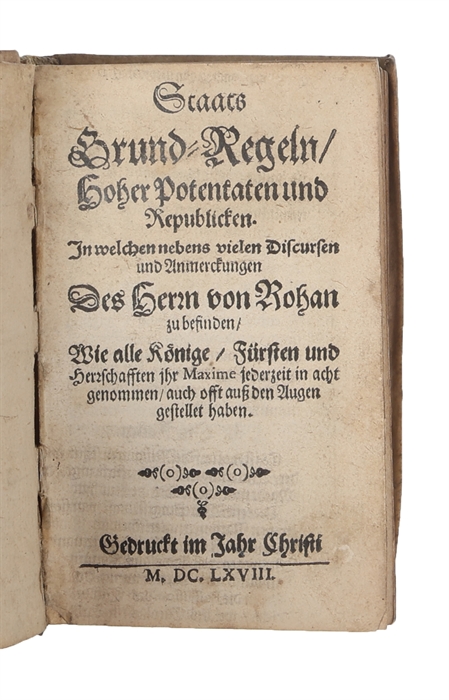 Staats
Grund-Regeln/
Hoher Potentaten und
Republicken.
In welchen nebens vielen Discursen
und Anmerckungen
Des Herrn von Rohan
zu befinden/
Wie alle Könige / Fürsten und
Herrschafften jhr Maxime jederzeit in acht
genommen/ auch offt auß den Augen
gestellet haben.
(o) (o)
(o)
Gedruckt im Jahr Christi
M. DC. LXVIII.